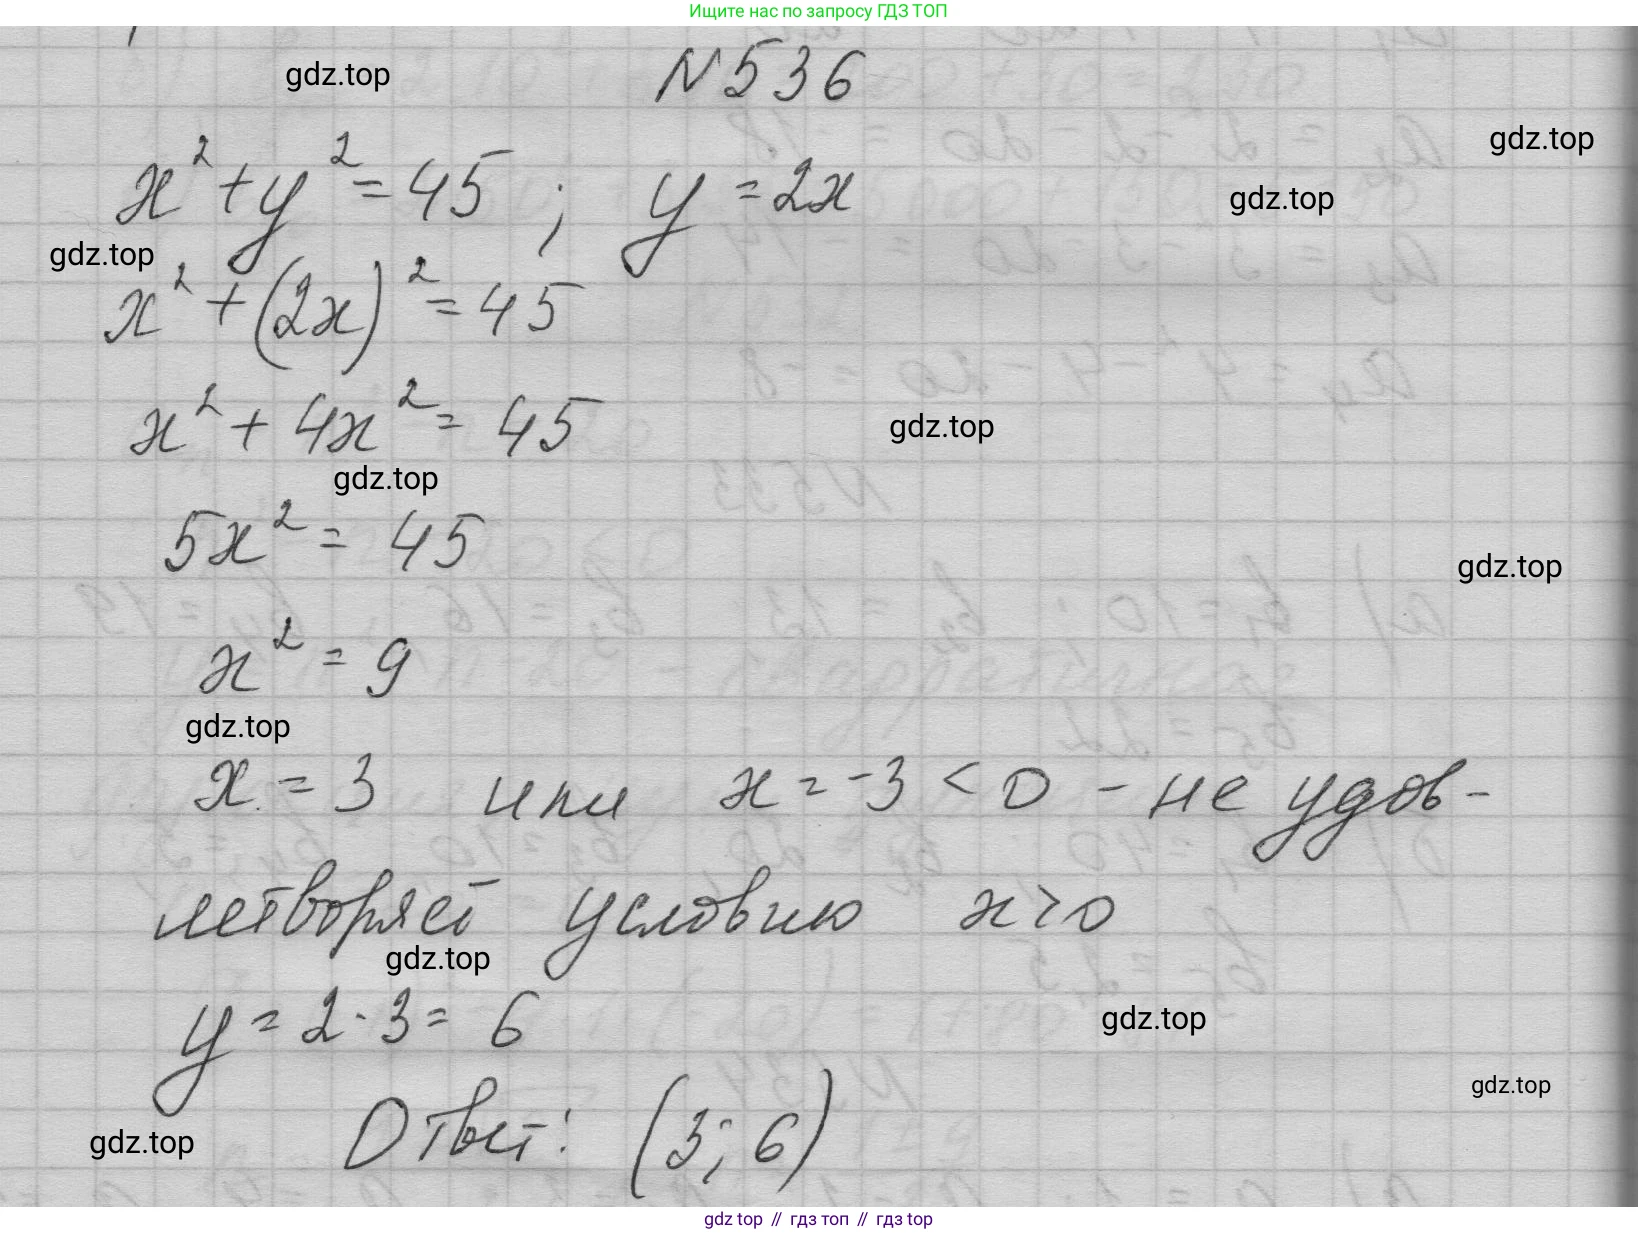 Ищите нас по запросу ГДЗ ТОП
N 536
gdz.top
gdz.top
x² + y² = 45 ; y = 2x
gdz.top
gdz.top
x² + (2x)² = 45
x² + 4x² = 45
gdz.top
gdz.top
5x² = 45
gdz.top
x² = 9
gdz.top
x = 3 или x = -3 < 0 - не удов-
летворяет условию x > 0
gdz.top
y = 2 · 3 = 6
gdz.top
gdz.top
Ответ: (3; 6)
gdz.top
gdz top // гдз топ // гдз top